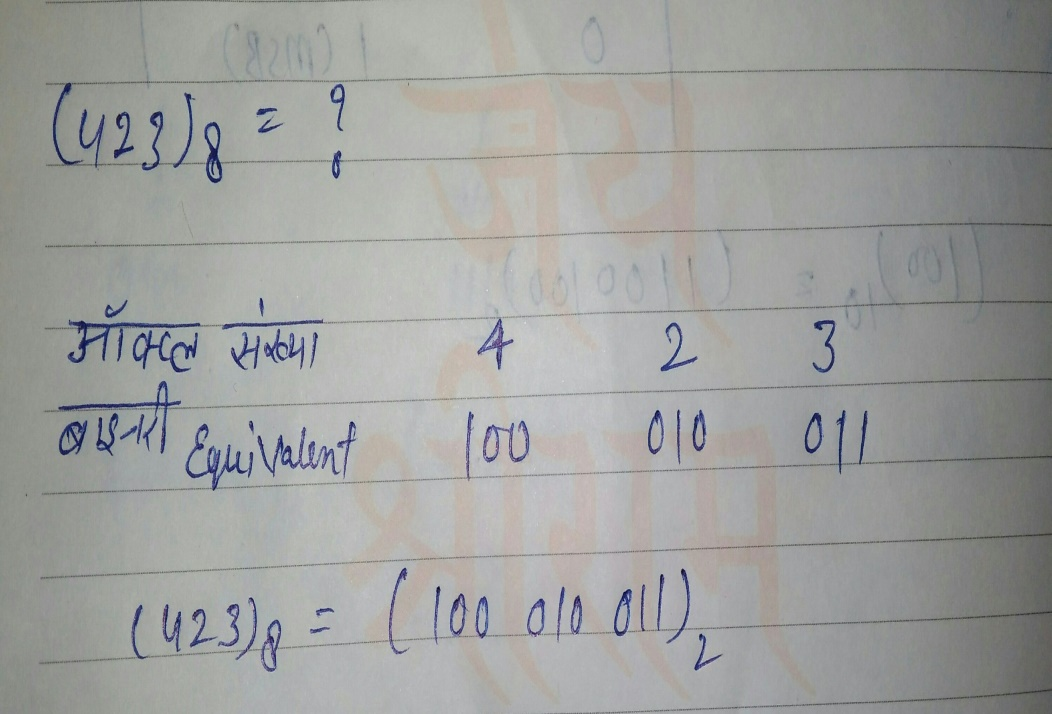 (423)8 = ?
ऑक्टल संख्या 4 2 3
बाइनरी Equivalent 100 010 011
(423)8 = (100 010 011)2